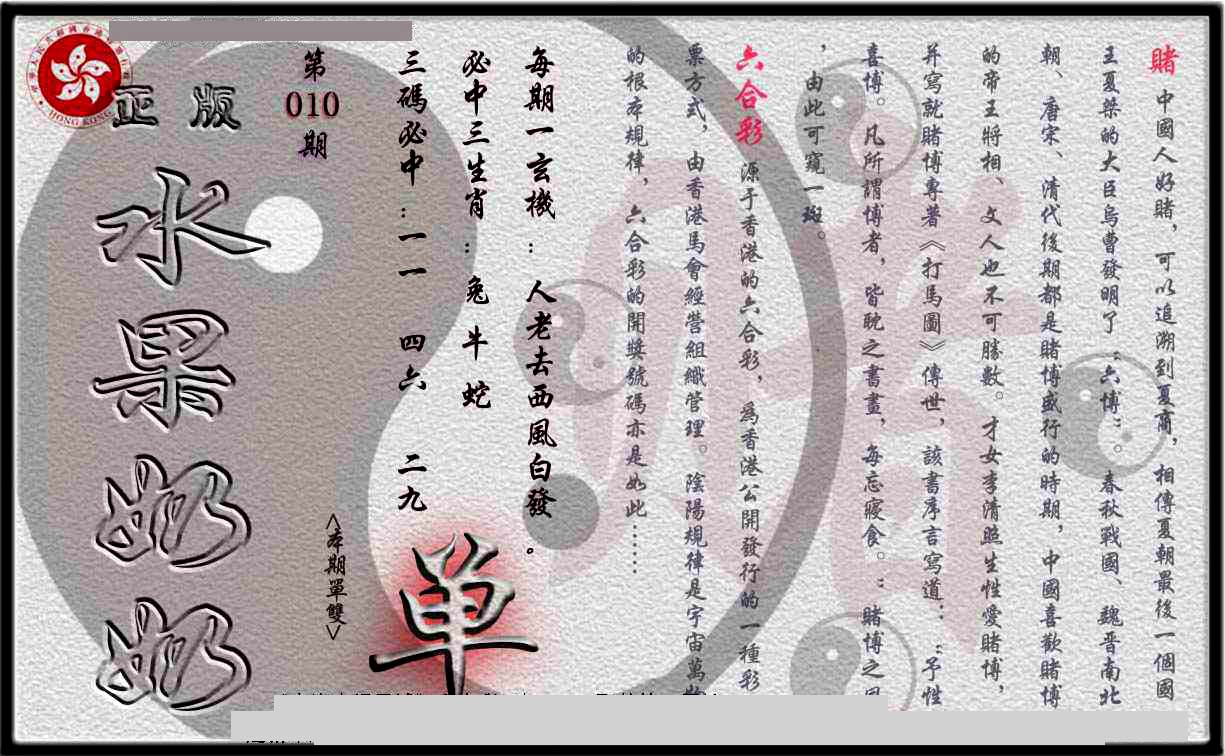 賭 中國人好賭，可以追溯到夏商，相傳夏朝最後一個國
王夏桀的大臣烏曹發明了“六博”。春秋戰國、魏晋南北
朝、唐宋、清代後期都是賭博盛行的時期，中國喜歡賭博
的帝王將相、文人也不可勝數。才女李清照生性愛賭博，
并寫就賭博專著《打馬圖》傳世，該書序言寫道：“予性
喜博。凡所謂博者，皆耽之書畫，每忘寢食。”賭博之風
，由此可窺一斑。
六合彩 源于香港的六合彩，為香港公開發行的一種彩
票方式，由香港馬會經營組織管理。陰陽規律是宇宙萬物
的根本規律，六合彩的開獎號碼亦是如此……
每期一玄機：人老去西風白發。
必中三生肖：兔 牛 蛇
三碼必中：一一 四六 二九
單
<本期單雙>
第010期
正版
水果奶奶
HONG KONG